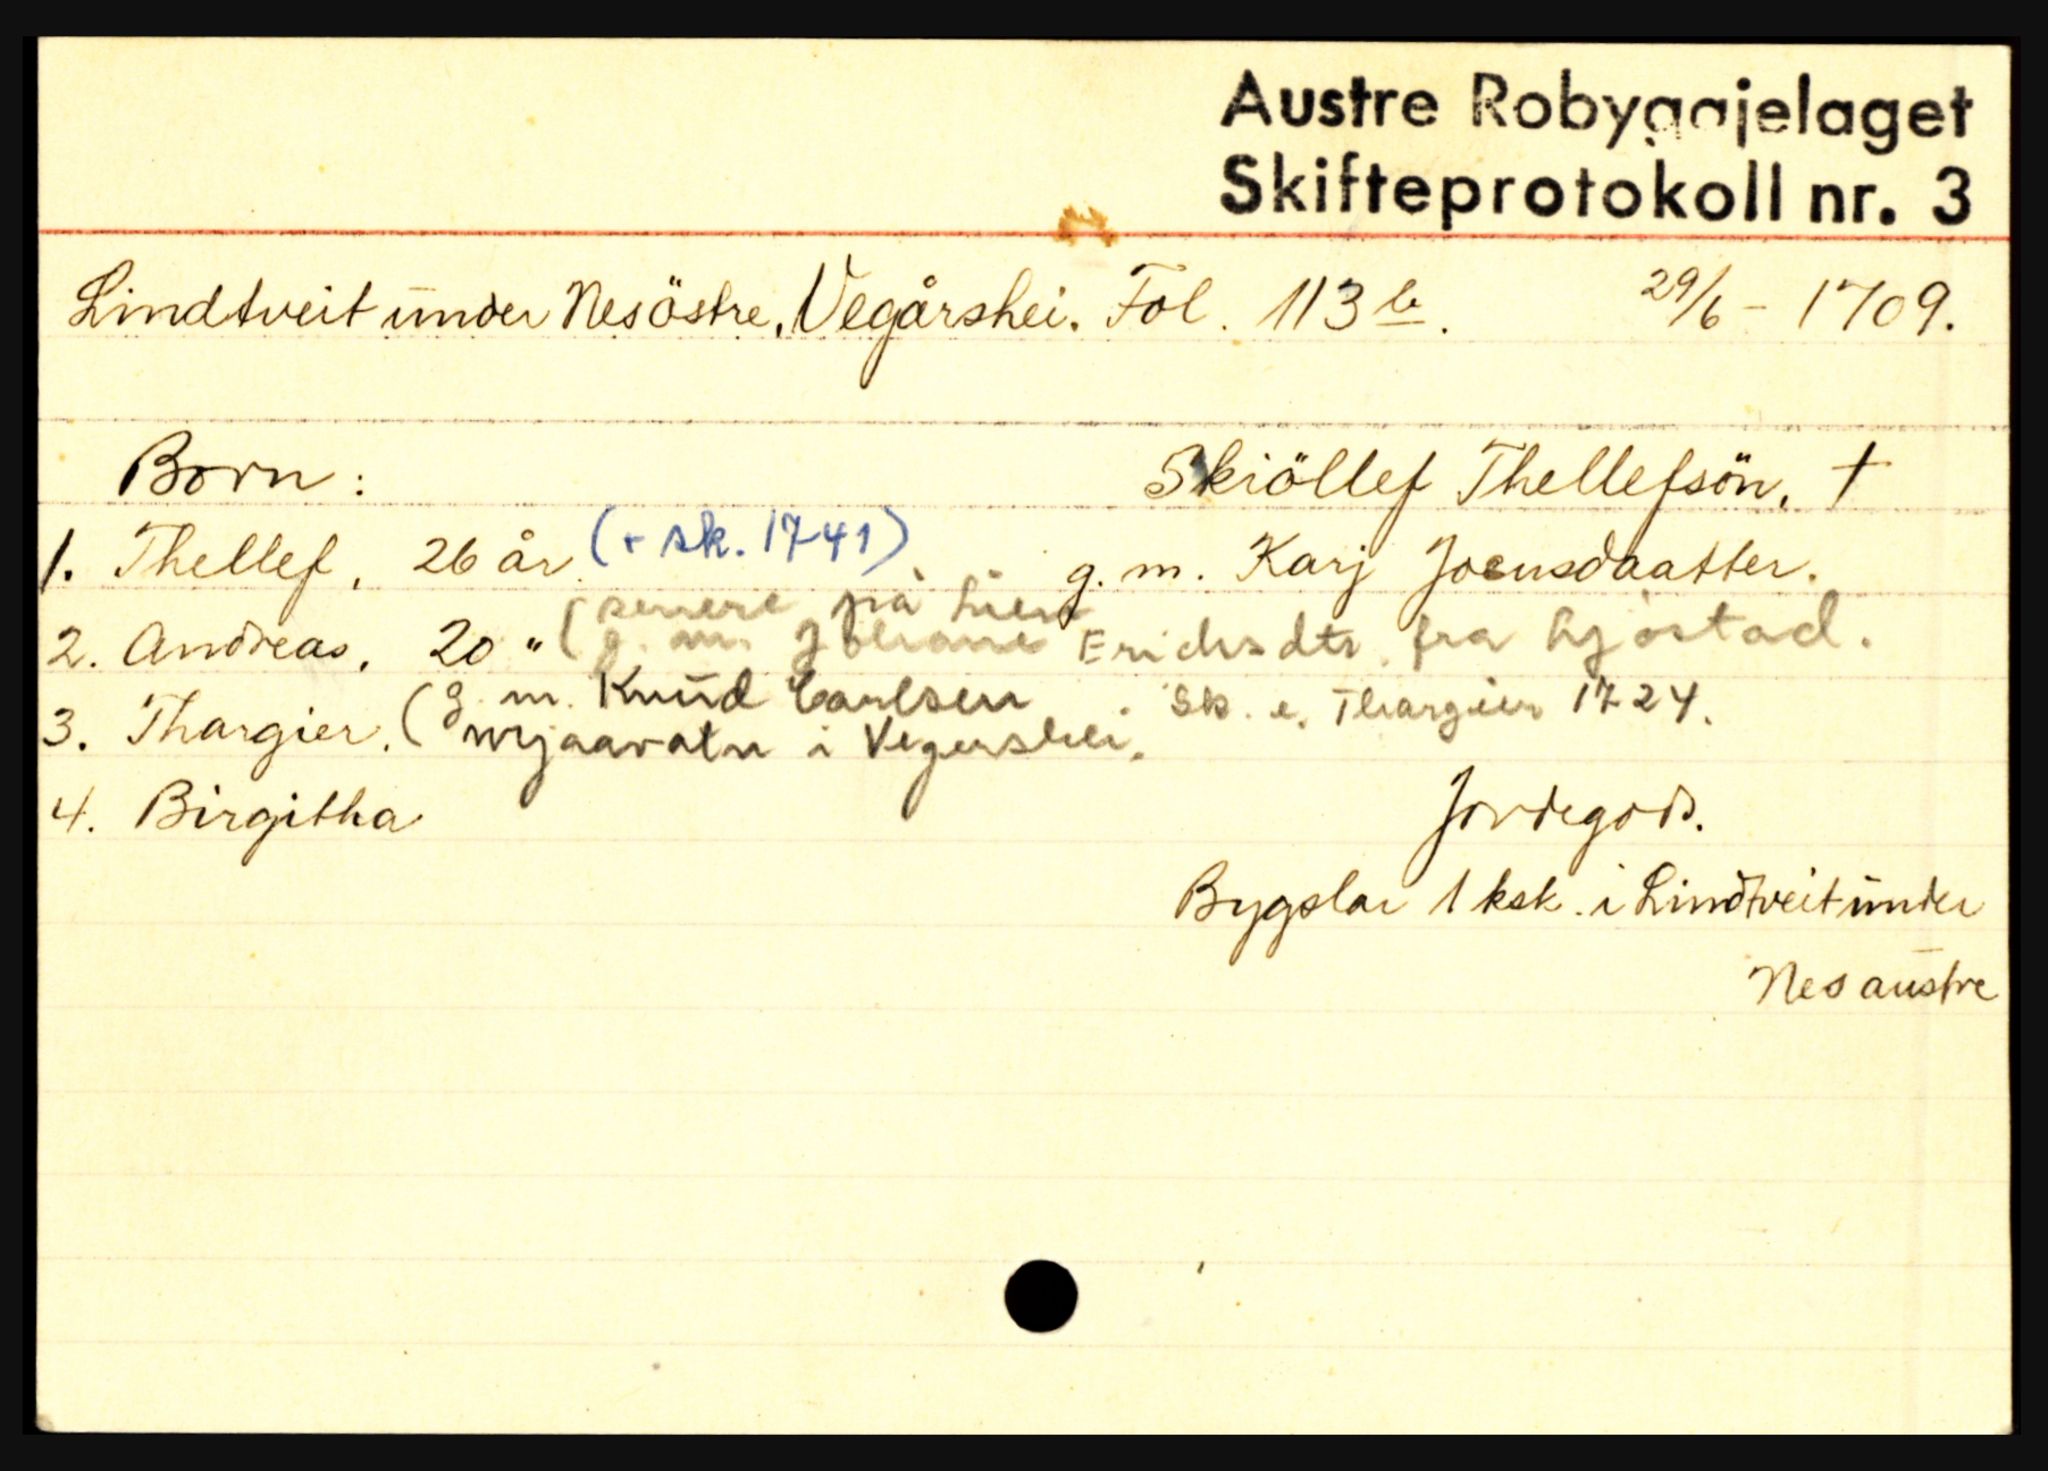 Austre Robyggjelaget
Skifteprotokoll nr. 3
Lindtveit ūnder Nesöstre, Vegårshei. Fol. 113 b. 29/6 - 1709.
Born: Skiöllef Thellefsön, †
1. Thellef, 26 år. (+ sk. 1741) g. m. Karj Joensdaatter.
2. Andreas, 20 " (senere på
g. m. Johane Erichsdtr. fra Hjöstad.
3. Thargier. (g. m. Knūd Carlsen
Mjaavatn i Vegershei. Sk. e. Thargier 1724.
4. Birgitha
Jordegods.
Bygslar 1 ksk. i Lindtveit ūnder
Nes aūstre